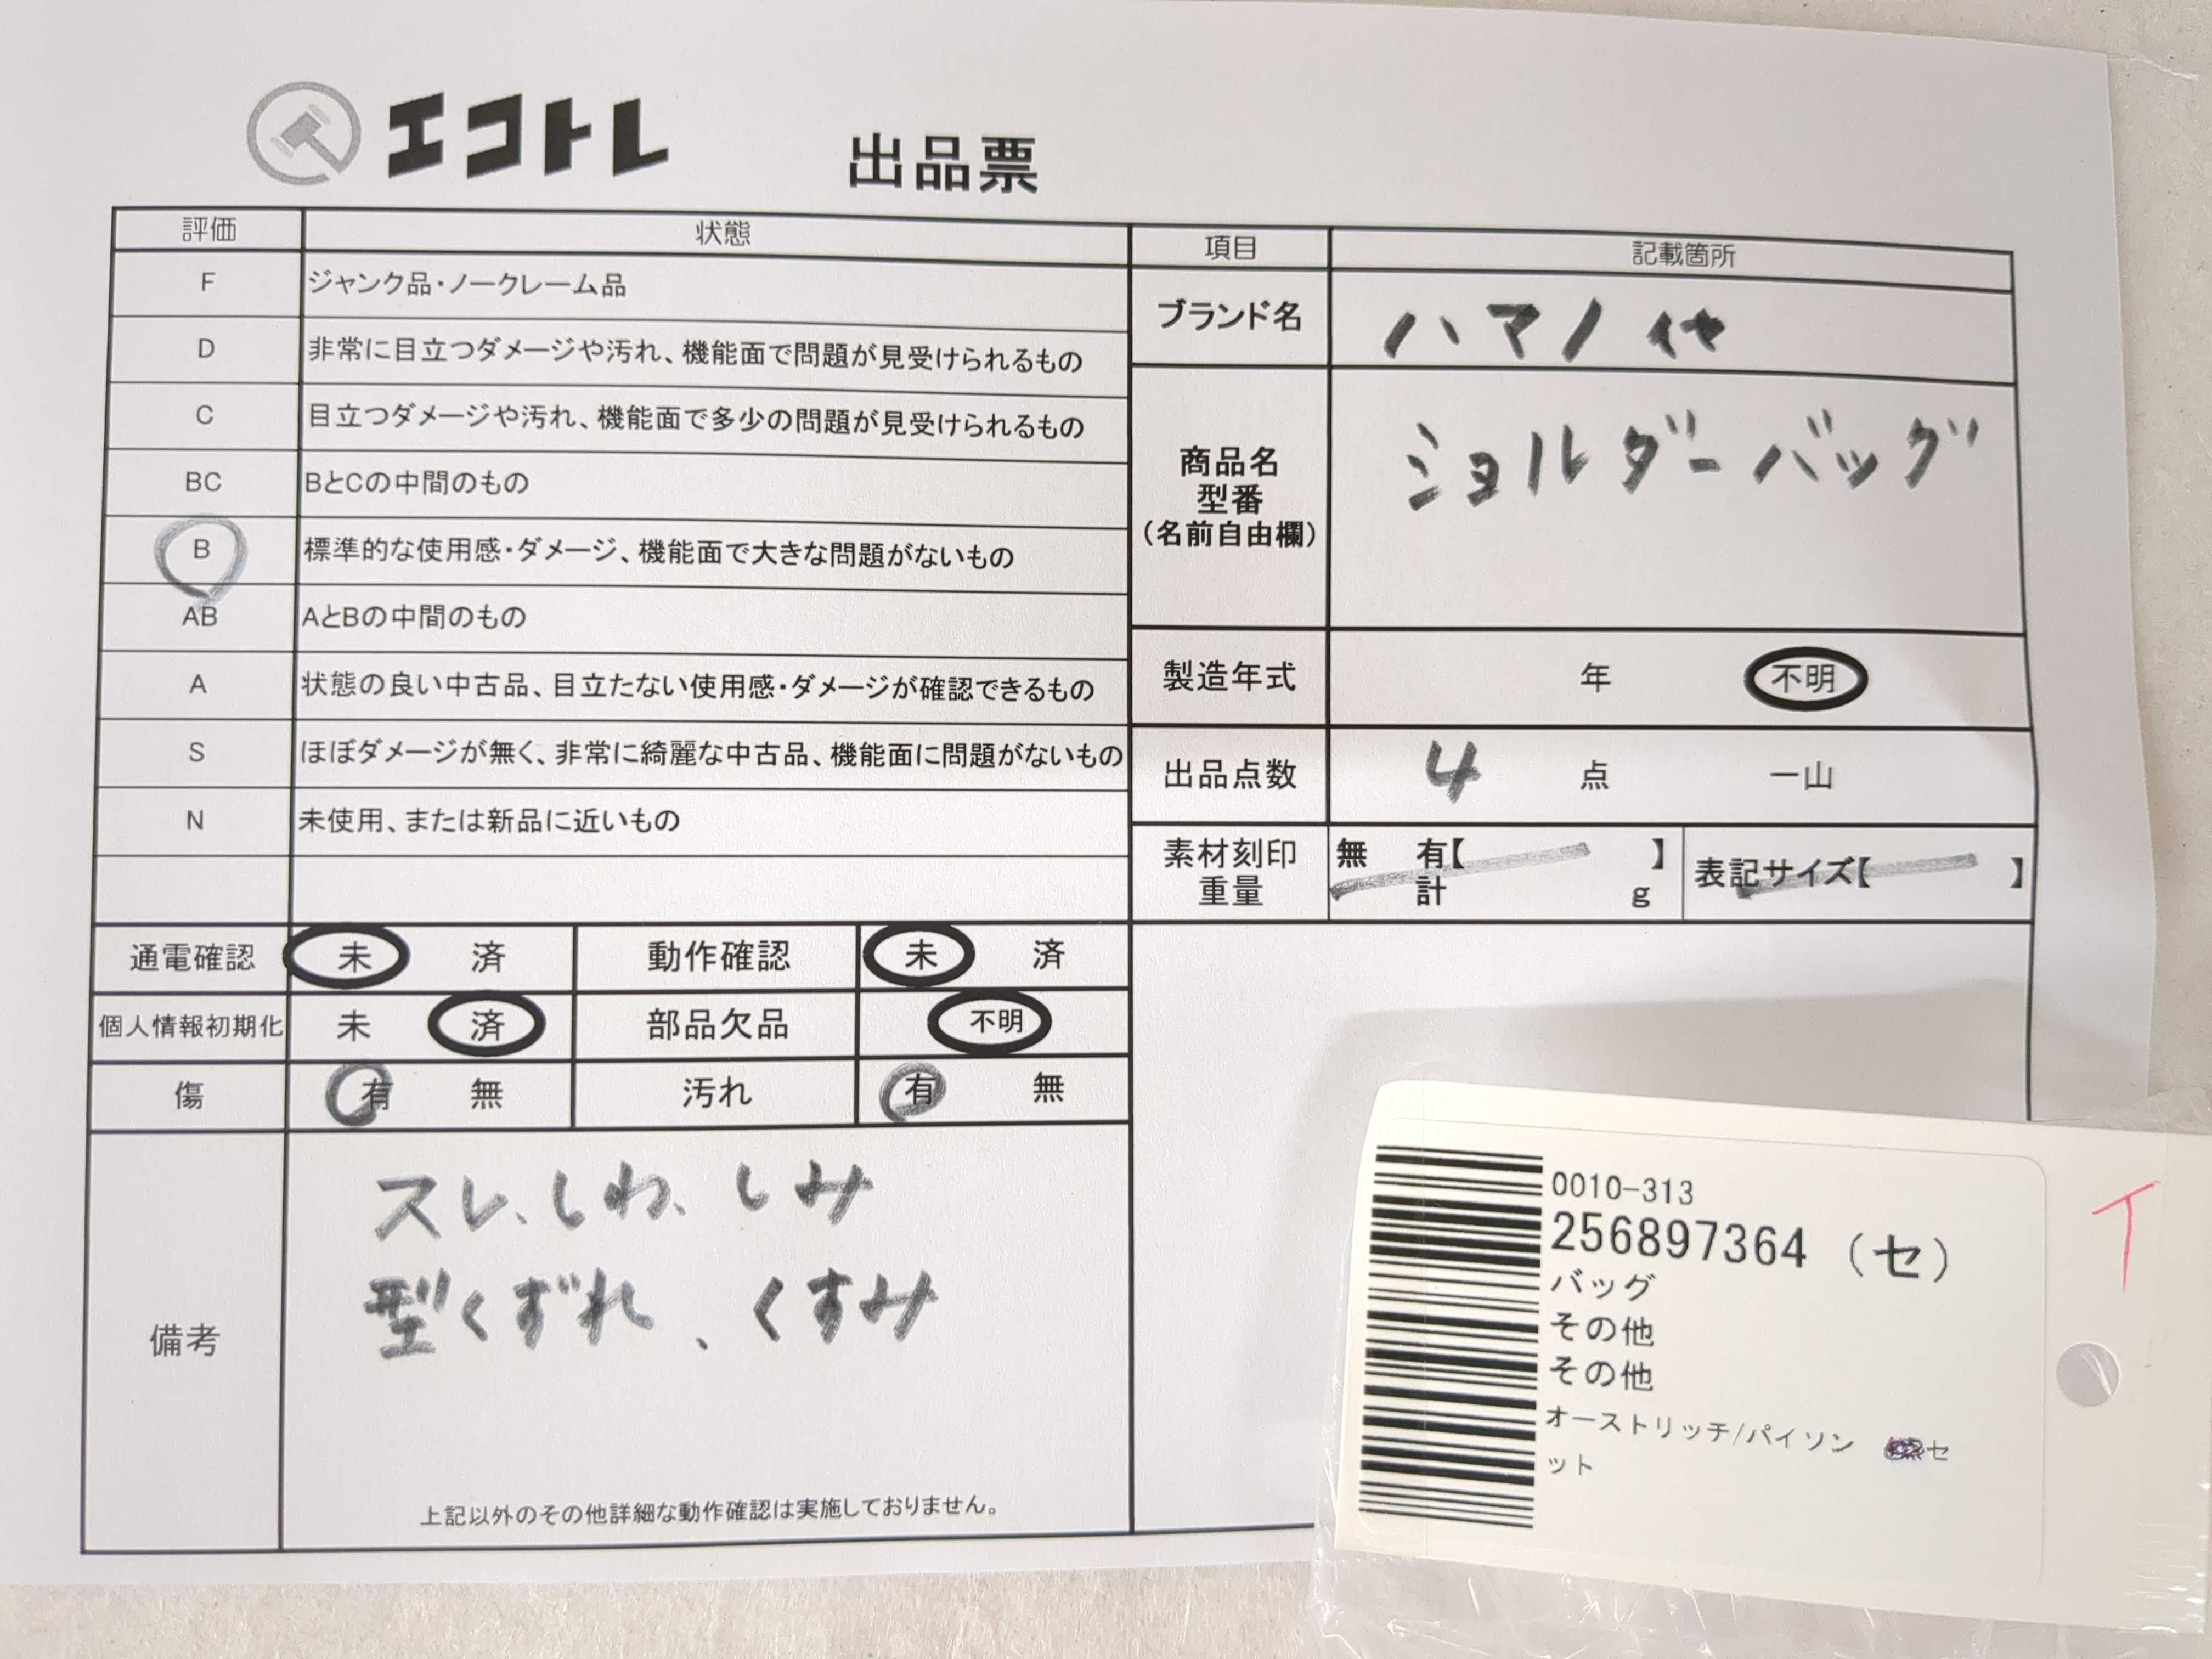 エコトレ
出品票
評価 状態
F ジャンク品・ノークレーム品
D 非常に目立つダメージや汚れ、機能面で問題が見受けられるもの
C 目立つダメージや汚れ、機能面で多少の問題が見受けられるもの
BC BとCの中間のもの
B 標準的な使用感・ダメージ、機能面で大きな問題がないもの
AB AとBの中間のもの
A 状態の良い中古品、目立たない使用感・ダメージが確認できるもの
S ほぼダメージが無く、非常に綺麗な中古品、機能面に問題がないもの
N 未使用、または新品に近いもの
項目 記載箇所
ブランド名 ハマノ 他
商品名
型番
(名前自由欄)
ショルダーバッグ
製造年式 年 不明
出品点数 4 点 一山
素材刻印 無 有【 】
重量 計 g
表記サイズ【 】
通電確認 未 済 動作確認 未 済
個人情報初期化 未 済 部品欠品 不明
傷 有 無 汚れ 有 無
備考
スレ、しわ、しみ
型くずれ、くすみ
上記以外のその他詳細な動作確認は実施しておりません。
0010-313
256897364 (セ)
バッグ
その他
その他
オーストリッチ/パイソン セ
ット
イ